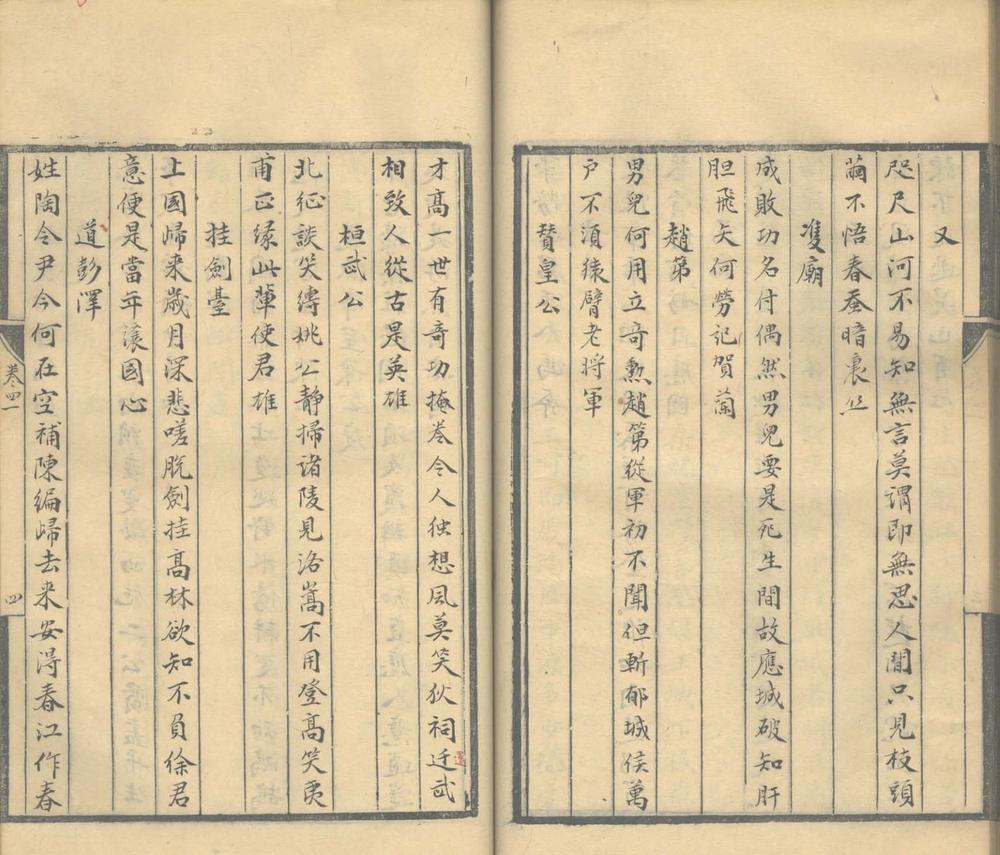 又
咫尺山河不易知無言莫謂即無思人間只見枝頭
繭不悟春蚕暗裏丝
雙廟
成敗功名付偶然男兒要是死生間故應城破知肝
胆飛矢何勞記賀蘭
趙第
男兒何用立奇勲趙第從軍初不聞但斬郁城侯萬
户不須猿臂老將軍
賛皇公
才高一世有奇功掩卷令人独想風莫笑狄祠迁武
相致人從古是英雄
桓武公
北征談笑縛姚公静掃諸陵見洛嵩不用登高笑夷
甫正缘此軰使君雄
挂劍臺
上國歸来歳月深悲嗟脱劍挂高林欲知不負徐君
意便是當年讓國心
道彭澤
姓陶令尹今何在空補陳編歸去来安得春江作春
卷四一
四